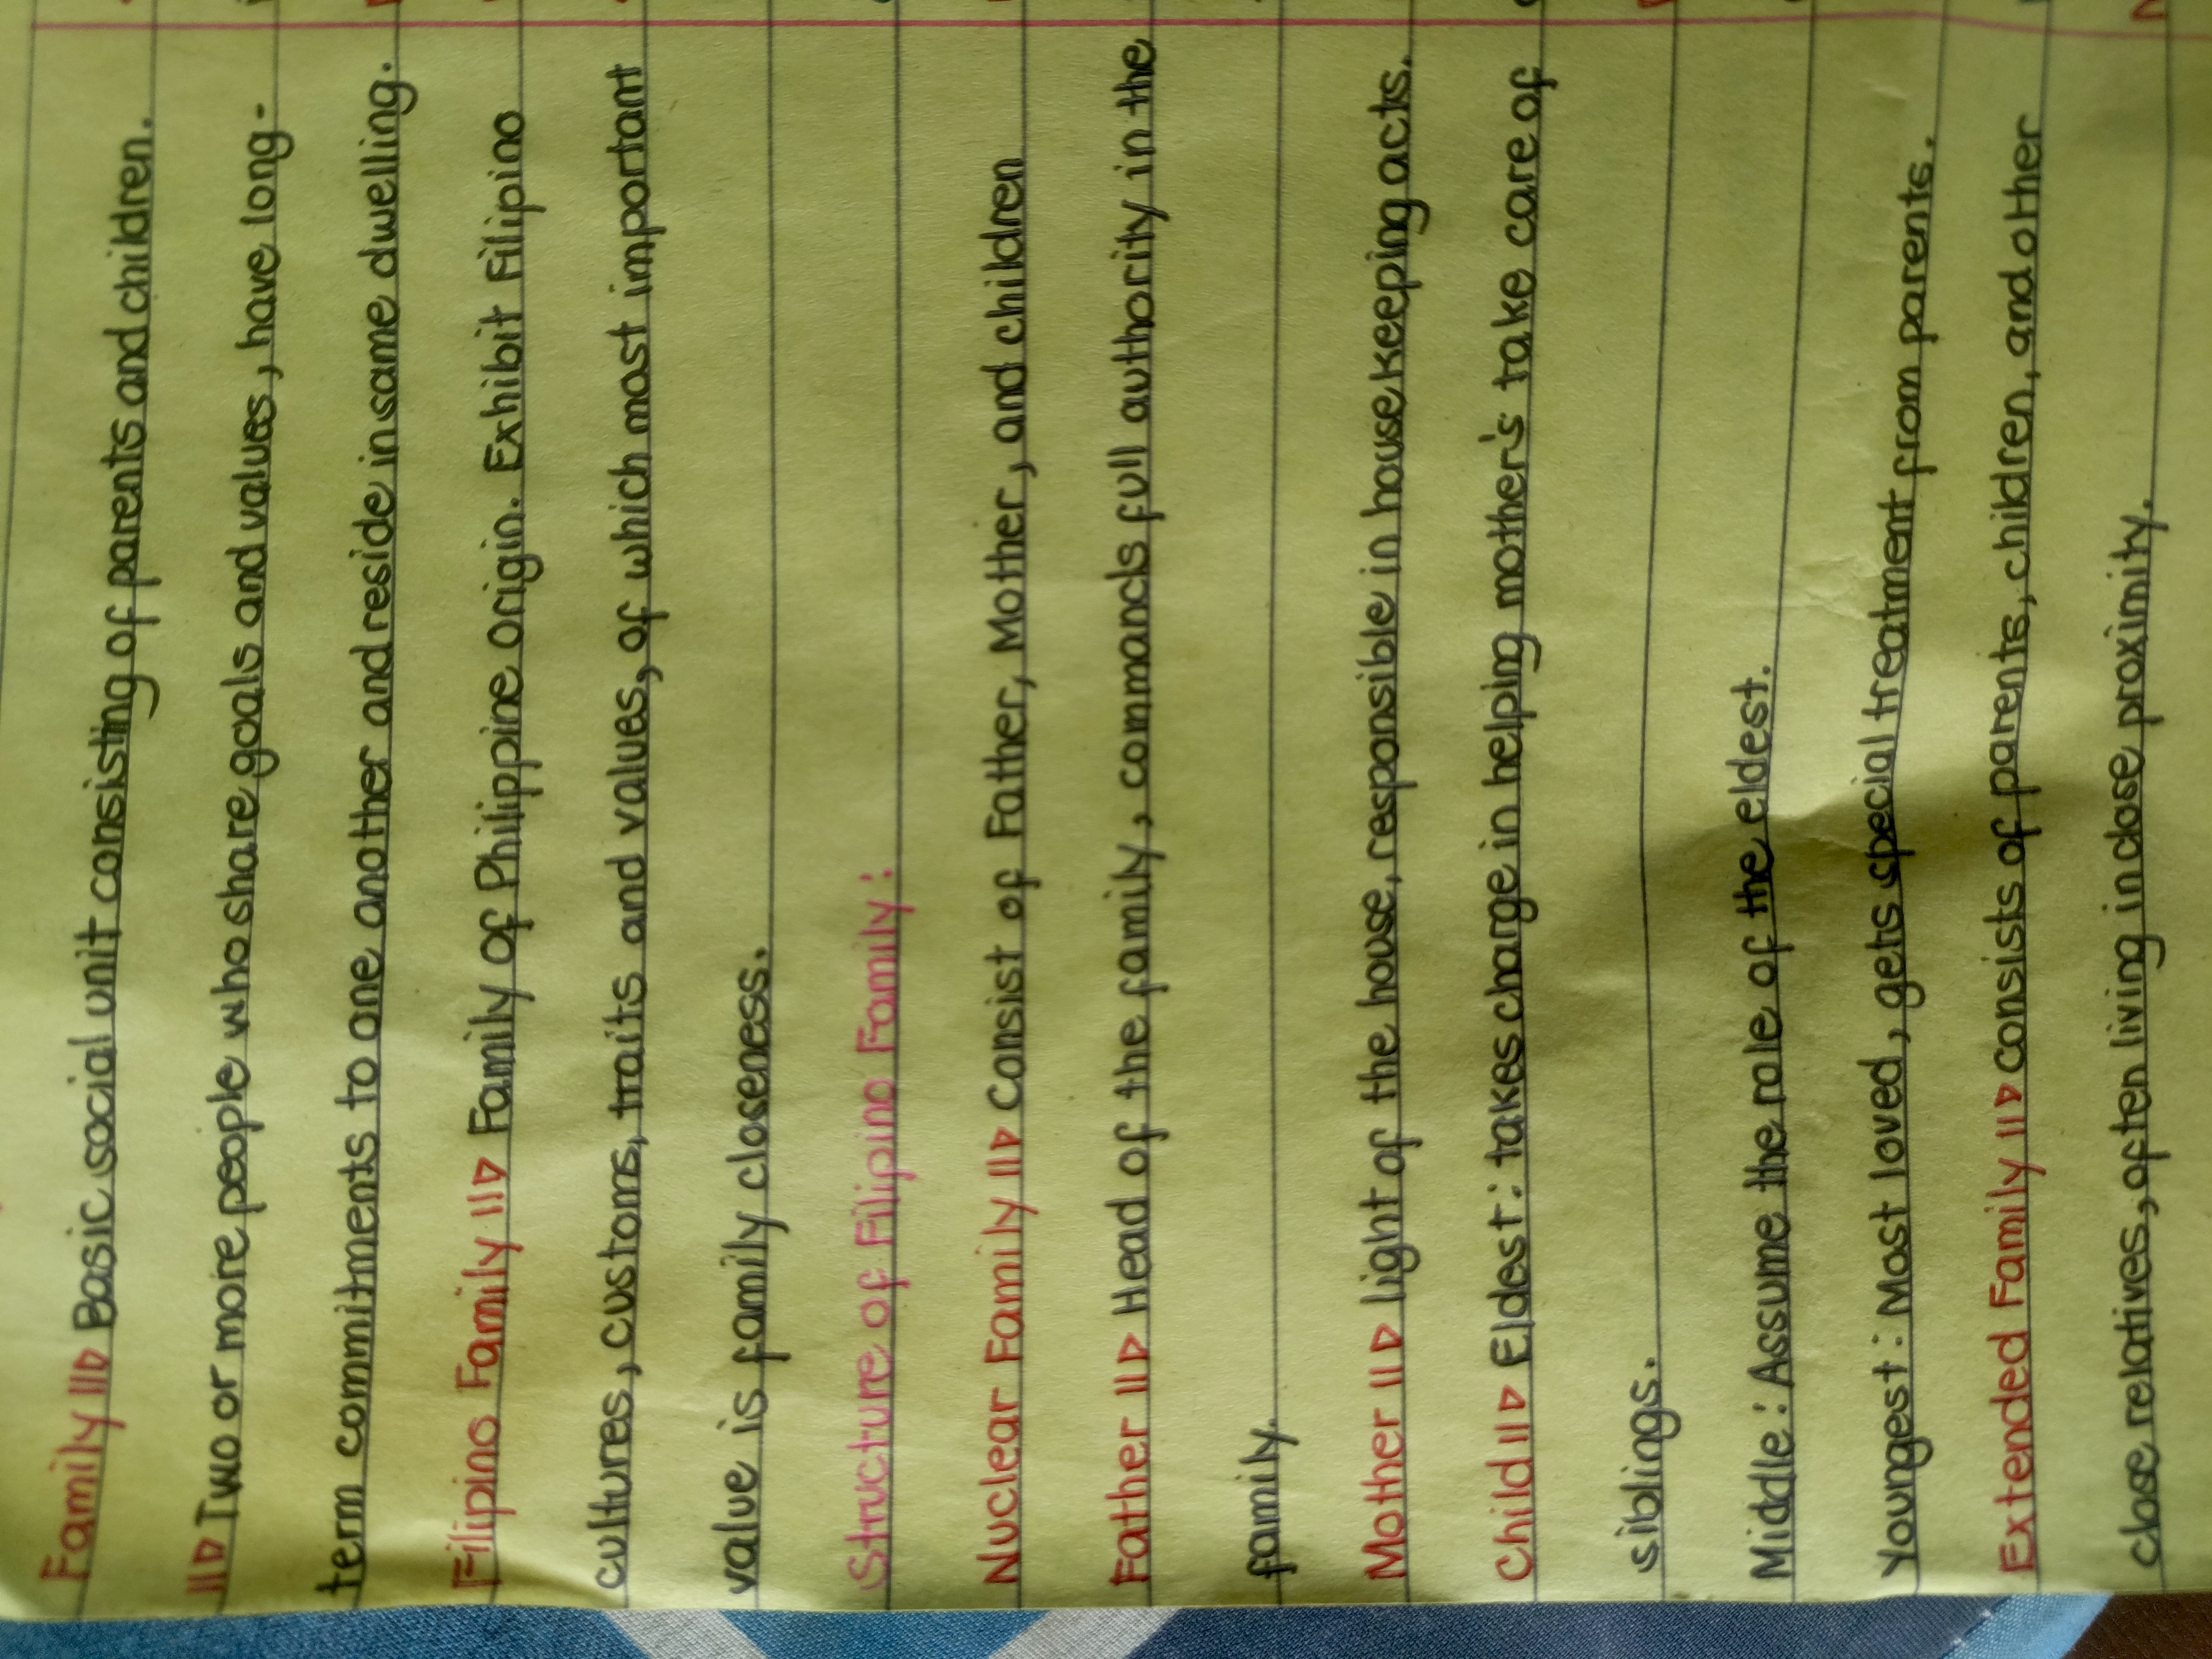 Family ⇒ Basic social unit consisting of parents and children.
⇒ Two or more people who share goals and values, have long-
term commitments to one another and reside in same dwelling.
Filipino Family ⇒ Family of Philippine origin. Exhibit Filipino
cultures, customs, traits and values, of which most important
value is family closeness.
Structure of Filipino Family:
Nuclear Family ⇒ Consist of Father, Mother, and children
Father ⇒ Head of the family, commands full authority in the
family.
Mother ⇒ light of the house, responsible in housekeeping acts.
Child ⇒ Eldest: takes charge in helping mother's take care of
siblings.
Middle: Assume the role of the eldest.
Youngest: Most loved, gets special treatment from parents.
Extended Family ⇒ consists of parents, children, and other
close relatives, often living in close proximity.